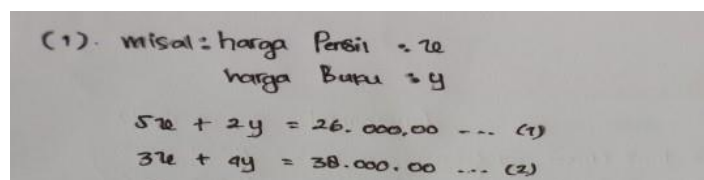 (1). misal : harga Pensil : x
harga Buku : y
5x + 2y = 26.000,00 --- (1)
3x + 4y = 38.000.00 ... (2)